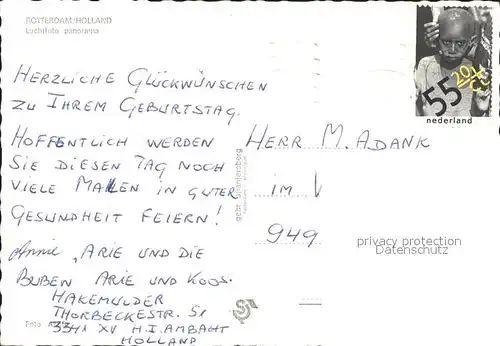 ROTTERDAM/HOLLAND
Luchtfoto panorama
HERZLICHE GLÜCKWÜNSCHEN
ZU IHREM GEBURTSTAG.
HOFFENTLICH WERDEN
SIE DIESEN TAG NOCH
VIELE MALEN IN GUTER
GESUNDHEIT FEIERN!
Annie, ARIE UND DIE
BUBEN ARIE UND KOOS.
HAKEMULDER
THORBECKESTR. 51
3341 XV H.I. AMBACHT
HOLLAND
Foto
gebr. spanjersberg
HERR M. ADANK
IM
949
55
nederland
privacy protection
Datenschutz